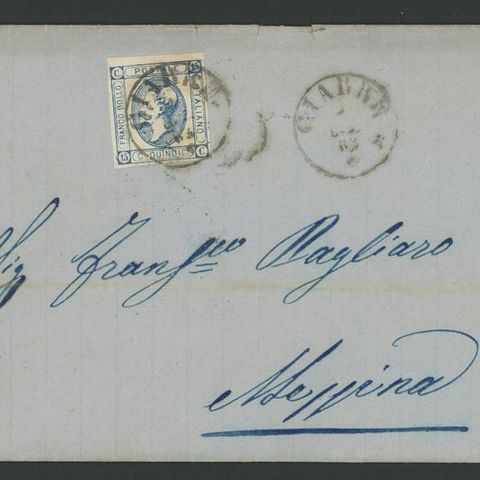 C POSTALE 15
FRANCO BOLLO
ITALIANO
15 C. QUINDICI C
GIARRE
63
Sig Frans.co Pagliaro
Messina